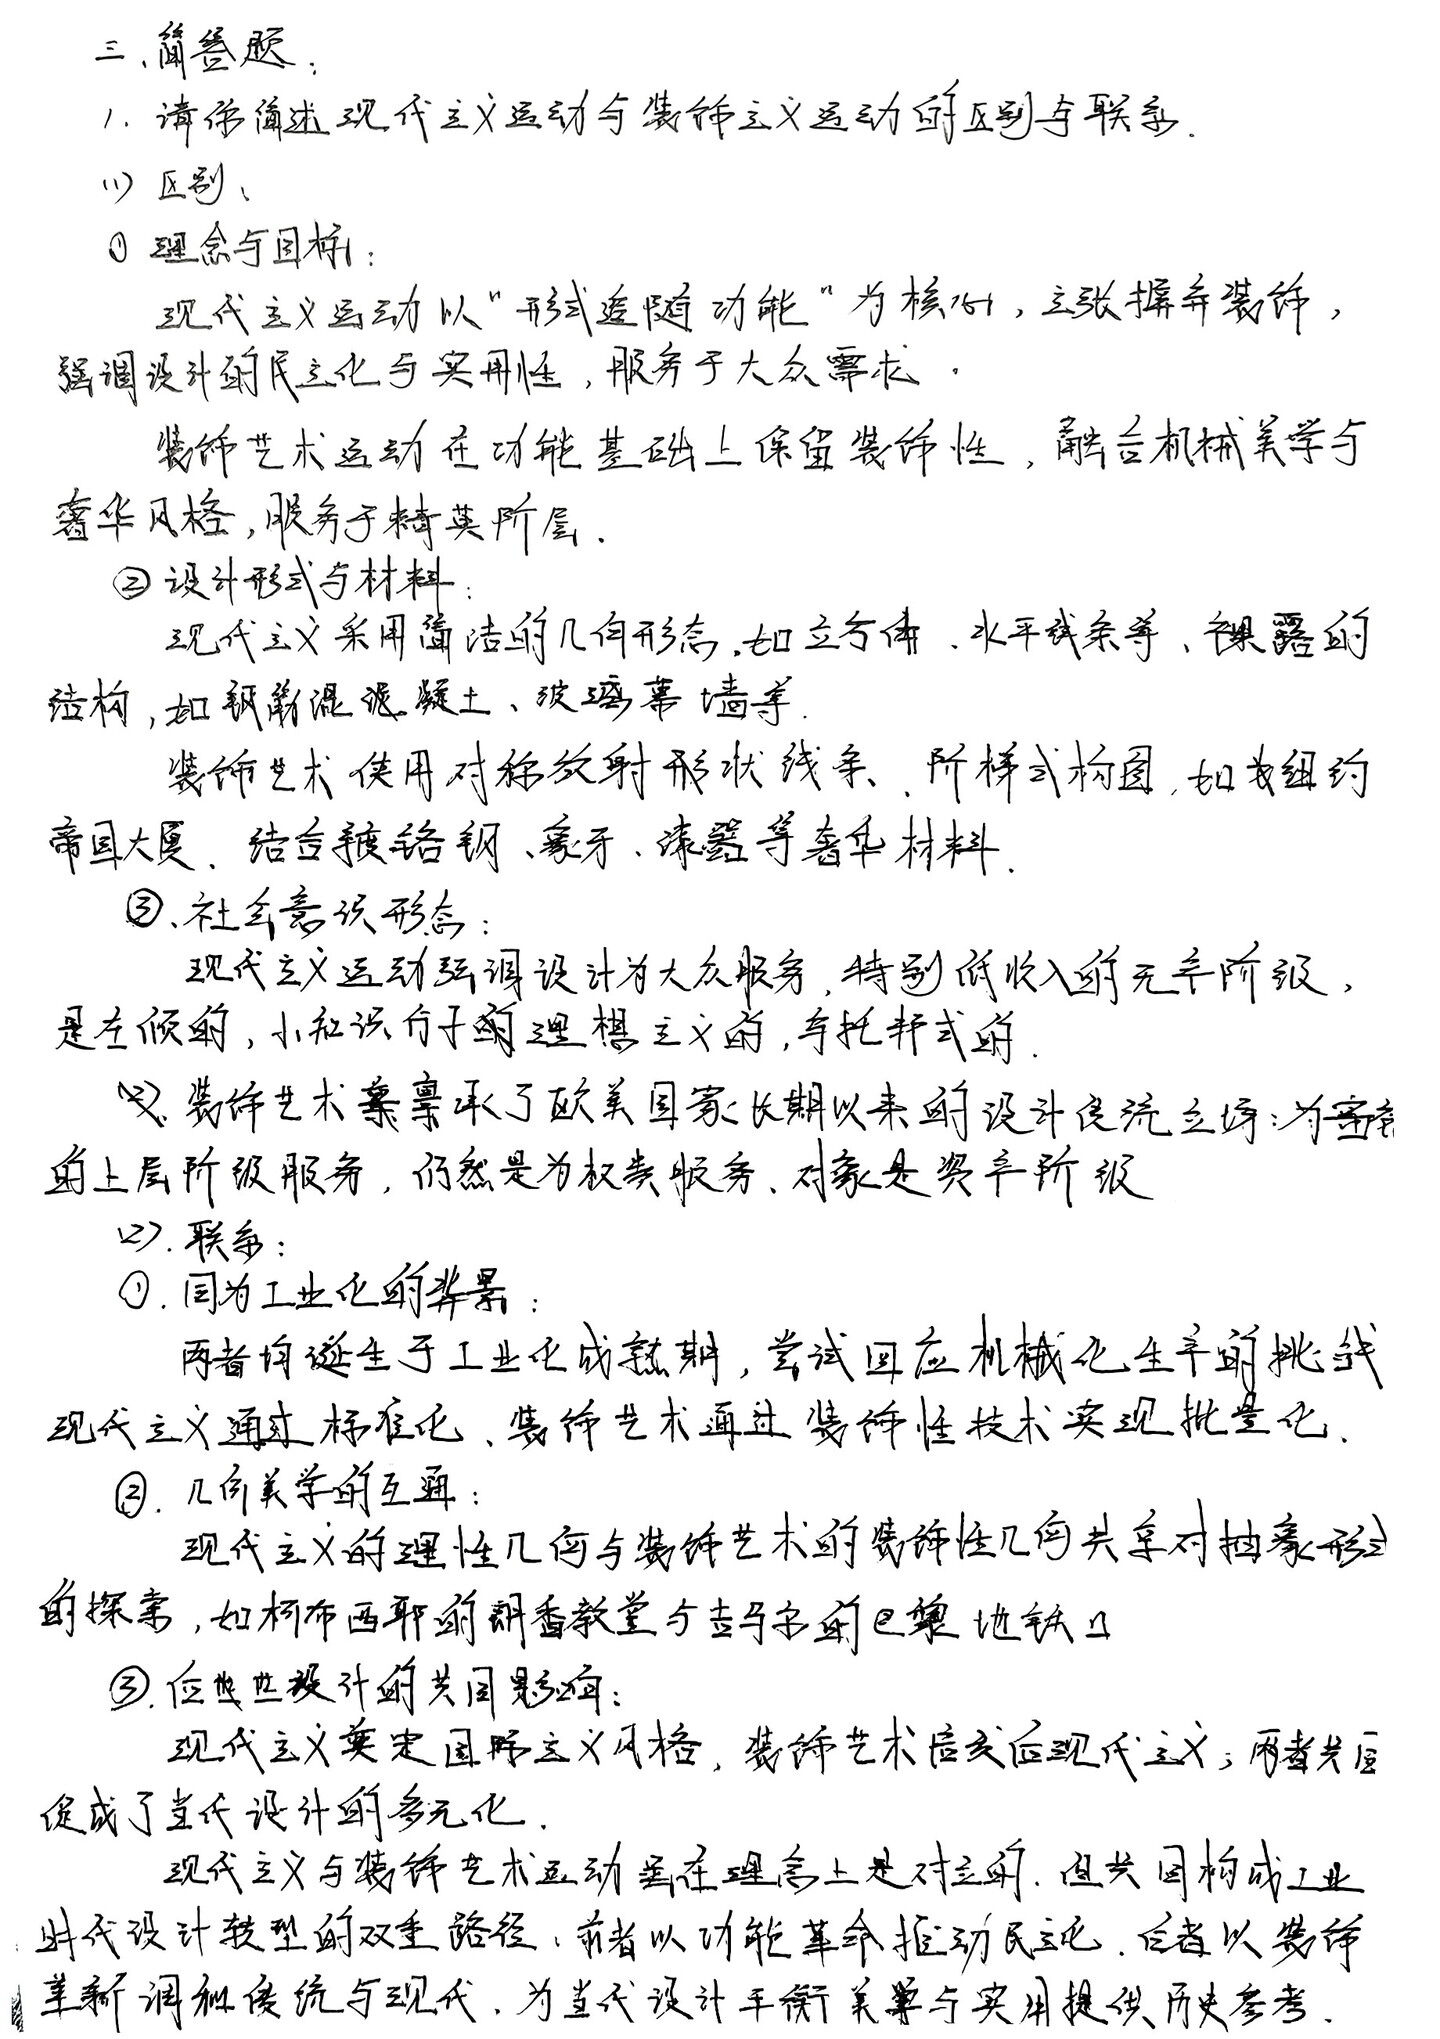 三、简答题:
1. 请你简述现代主义运动与装饰主义运动的区别与联系.
(1) 区别、
① 理念与目标:
现代主义运动以"形式追随功能"为核心,主张摒弃装饰,
强调设计的民主化与实用性,服务于大众需求.
装饰艺术运动在功能基础上保留装饰性,融合机械美学与
奢华风格,服务于精英阶层.
② 设计形式与材料:
现代主义采用简洁的几何形态,如立方体、水平线条等、裸露的
结构,如钢筋混凝土、玻璃幕墙等.
装饰艺术使用对称放射形状线条、阶梯式构图,如纽约
帝国大厦、结合镀铬钢、象牙、漆器等奢华材料.
③、社会意识形态:
现代主义运动强调设计为大众服务,特别低收入的无产阶级,
是左倾的,小知识分子的理想主义的,乌托邦式的.
装饰艺术秉承了欧美国家长期以来的设计传统立场:为
的上层阶级服务,仍然是为权贵服务、对象是资产阶级
(2). 联系:
①. 因为工业化的背景:
两者均诞生于工业化成熟期,尝试回应机械化生产的挑战
现代主义通过标准化、装饰艺术通过装饰性技术实现批量化.
②. 几何美学的互通:
现代主义的理性几何与装饰艺术的装饰性几何共享对抽象形式
的探索,如柯布西耶的朗香教堂与吉马尔的巴黎地铁口
③. 后世设计的共同影响:
现代主义奠定国际主义风格,装饰艺术启发后现代主义,两者共同
促成了当代设计的多元化.
现代主义与装饰艺术运动虽在理念上是对立的.但共同构成工业
时代设计转型的双重路径,前者以功能革命推动民主化、后者以装饰
革新调和传统与现代、为当代设计平衡美学与实用提供历史参考.